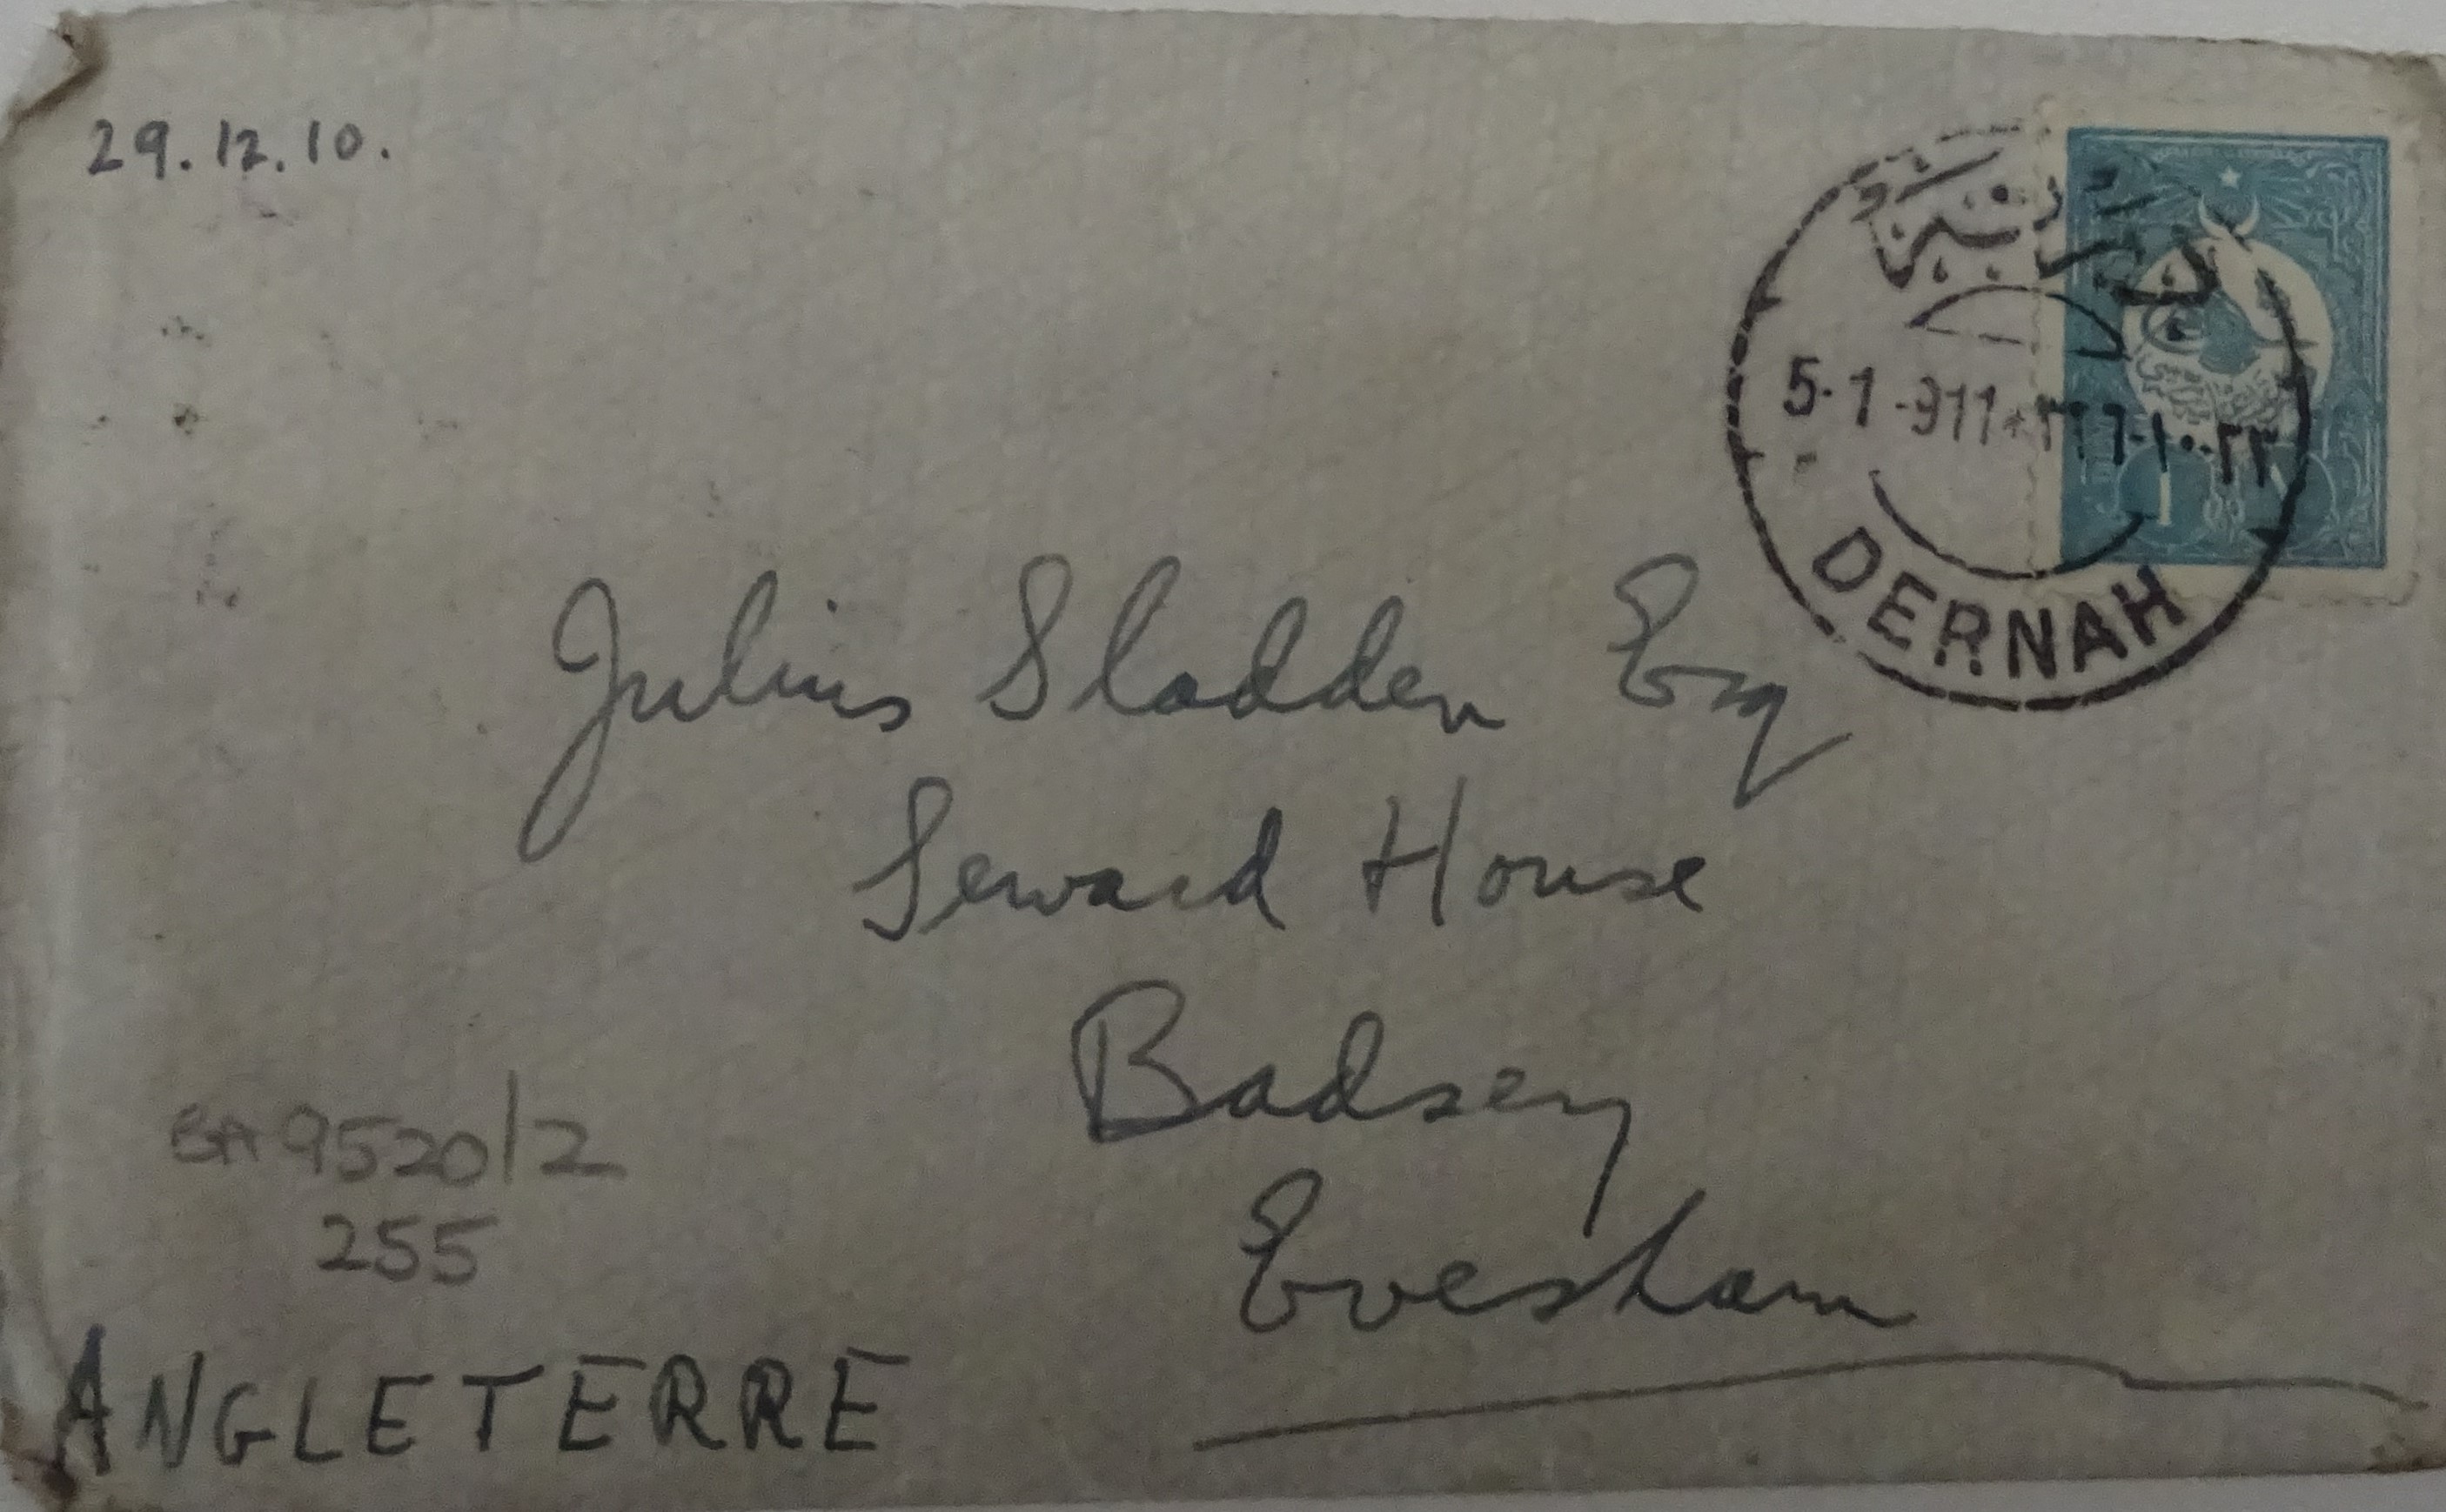 29.12.10.
درنه
5-1-911 * ٣٢٦-١٠-٢٣
DERNAH
Julius Sladden Esq
Seward House
Badsey
Evesham
BA 9520/2
255
ANGLETERRE